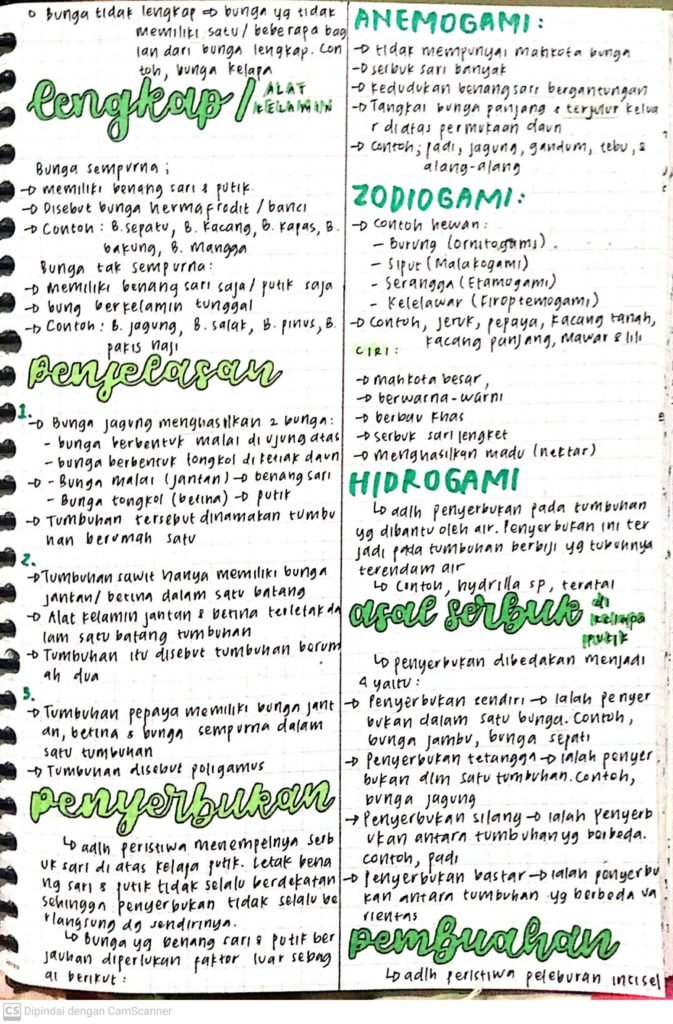 o Bunga tidak lengkap → bunga yg tidak
memiliki satu/ beberapa bag
ian dari bunga lengkap. Con
toh, bunga kelapa
lengkap / ALAT
KELAMIN
Bunga sempurna ;
→ memiliki benang sari & putik
→ Disebut bunga hermafrodit / banci
→ Contoh : B. sepatu, B. kacang, B. kapas, B.
bakung, B. mangga
Bunga tak sempurna :
→ memiliki benang sari saja/ putik saja
→ bung berkelamin tunggal
→ Contoh : B. jagung, B. salak, B. pinus, B.
pakis haji
penjelasan
1.
→ Bunga jagung menghasilkan 2 bunga :
- bunga berbentuk malai di ujung atas
- bunga berbentuk tongkol di ketiak daun
→ - Bunga malai (jantan) → benang sari
- Bunga tongkol (betina) → putik
→ Tumbuhan tersebut dinamakan tumbu
han berumah satu
2.
→ Tumbuhan sawit hanya memiliki bunga
jantan/ betina dalam satu batang
→ Alat kelamin jantan & betina terletak da
lam satu batang tumbuhan
→ Tumbuhan itu disebut tumbuhan berum
ah dua
3.
→ Tumbuhan pepaya memiliki bunga jant
an, betina & bunga sempurna dalam
satu tumbuhan
→ Tumbuhan disebut poligamus
penyerbukan
↳ adlh peristiwa menempelnya serb
uk sari di atas kelapa putik. Letak bena
ng sari & putik tidak selalu berdekatan
sehingga penyerbukan tidak selalu be
rlangsung dg sendirinya.
↳ Bunga yg benang sari & putik ber
jauhan diperlukan faktor luar sebag
ai berikut :
ANEMOGAMI :
→ tidak mempunyai mahkota bunga
→ serbuk sari banyak
→ kedudukan benang sari bergantungan
→ Tangkai bunga panjang & terjulur kelua
r diatas permukaan daun
→ Contoh; padi, jagung, gandum, tebu, &
alang-alang
ZODIOGAMI :
→ Contoh hewan :
- Burung (ornitogami)
- Siput (Malakogami)
- Serangga (Etamogami)
- Kelelawar (Kiroptemogami)
→ Contoh, jeruk, pepaya, kacang tanah,
kacang panjang, mawar & lili
CIRI :
→ mahkota besar,
→ berwarna-warni
→ berbau khas
→ serbuk sari lengket
→ menghasilkan madu (nektar)
HIDROGAMI
↳ adlh penyerbukan pada tumbuhan
yg dibantu oleh air. Penyerbukan ini ter
jadi pada tumbuhan berbiji yg tubuhnya
terendam air
↳ Contoh, hydrilla sp, teratai
asal serbuk di
kelapa
putik
↳ penyerbukan dibedakan menjadi
4 yaitu :
→ Penyerbukan sendiri → ialah penyer
bukan dalam satu bunga. Contoh,
bunga jambu, bunga sepati
→ Penyerbukan tetangga → ialah penyer
bukan dlm satu tumbuhan. Contoh,
bunga jagung
→ Penyerbukan silang → ialah penyerb
ukan antara tumbuhan yg berbeda.
contoh, padi
→ Penyerbukan bastar → ialah penyerbu
kan antara tumbuhan yg berbeda va
rientas
pembuahan
↳ adlh peristiwa peleburan inti sel
CS Dipindai dengan CamScanner